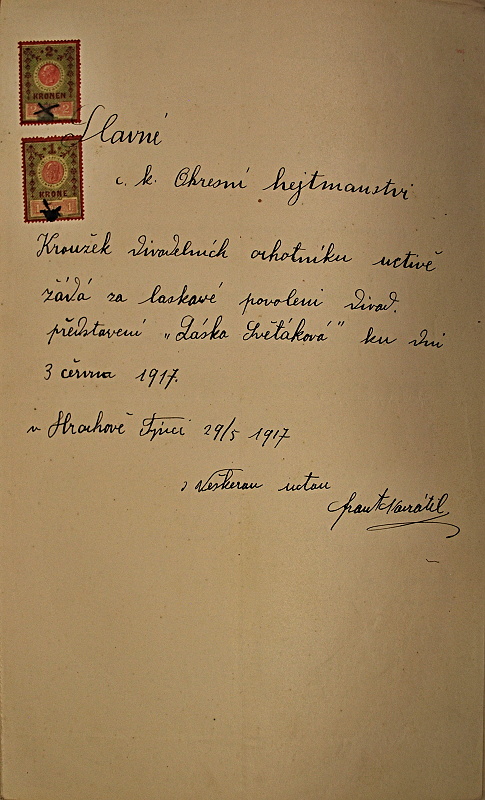 2
KRONEN
2 2
1
KRONE
1 1
Slavné
c. k. Okresní hejtmanstvi
Kroužek divadelních ochotníku uctivě
žádá za laskavé povoleni divad.
představení „Láska Světáková" ku dni
3 června 1917.
v Hrochově Týnci 29/5 1917
s veškerou uctou
Frant Navrátil